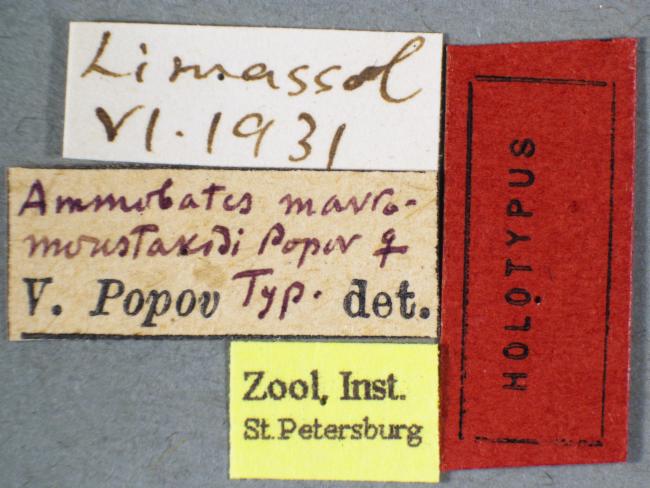 Limassol
VI.1931
Ammobates mavro-
moustakidi Popov ♀
Typ.
V. Popov det.
Zool. Inst.
St.Petersburg
HOLOTYPUS